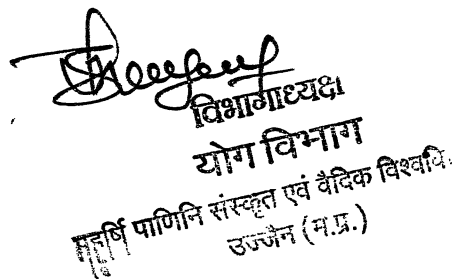 विभागाध्यक्ष
योग विभाग
महर्षि पाणिनि संस्कृत एवं वैदिक विश्ववि.
उज्जैन (म.प्र.)